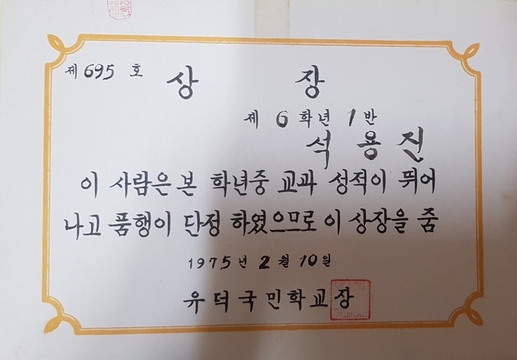 제 695 호
상 장
제 6 학년 1 반
석 용 진
이 사람은 본 학년중 교과 성적이 뛰어
나고 품행이 단정 하였으므로 이 상장을 줌
1975 년 2 월 10 일
유덕국민학교장